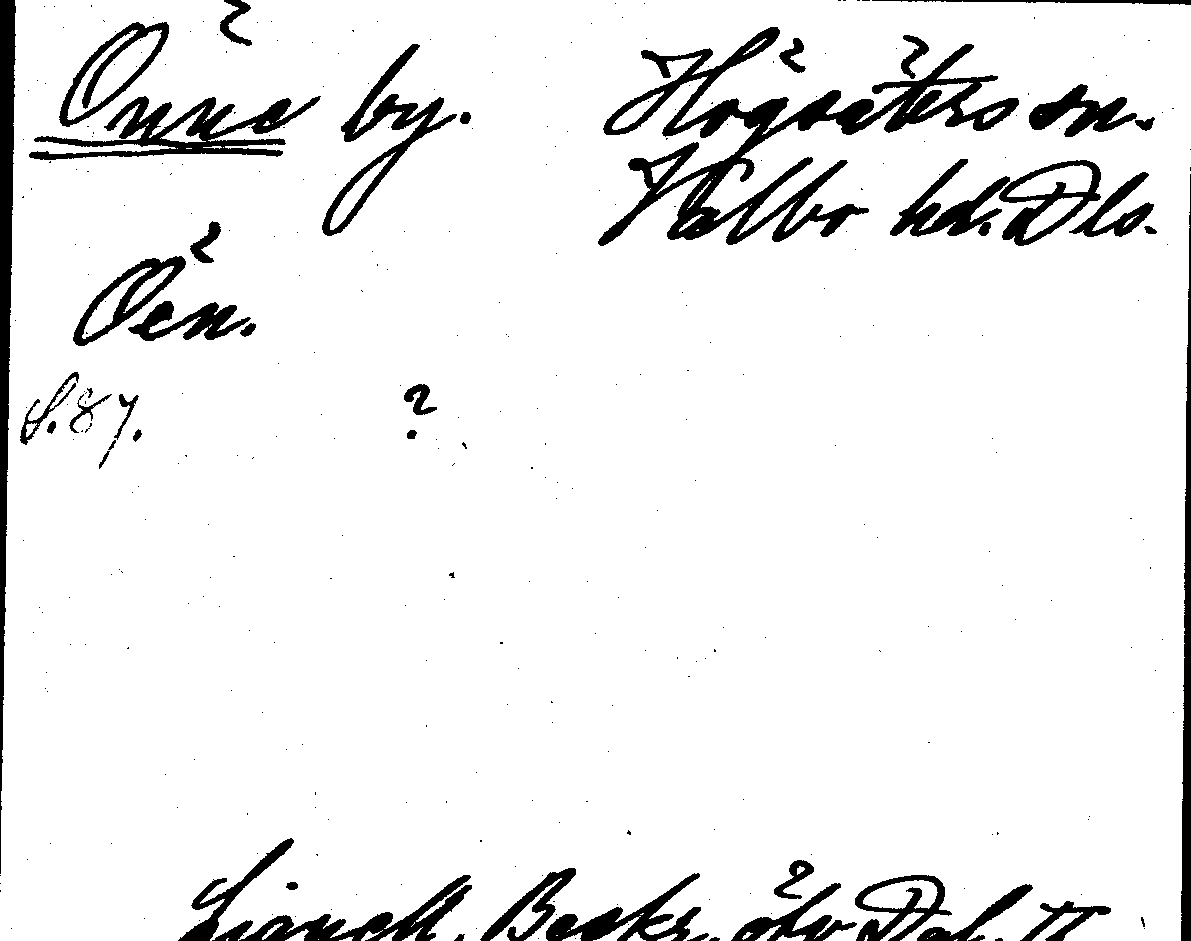 Önne by. Högsäters sn.
Valbo hd. Dls.
Öen.
S. 87. ?
Lignell, Beskr. öfv. Dal. II